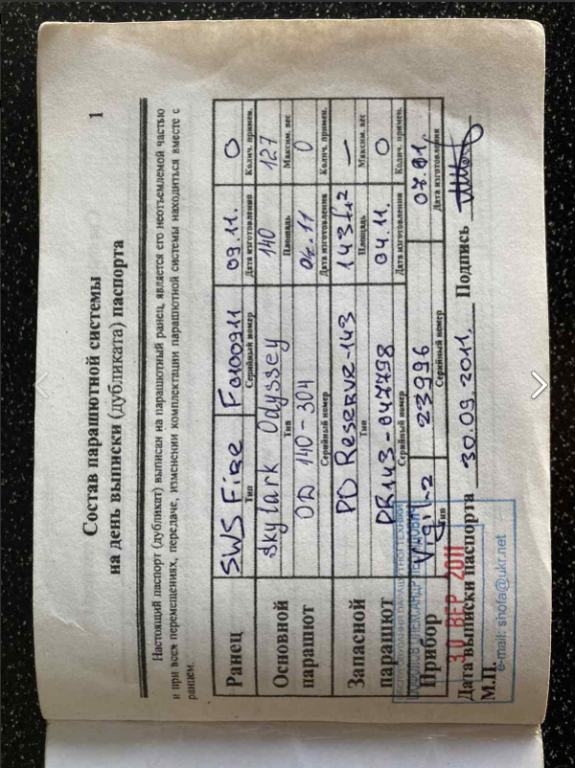 1
Состав парашютной системы
на день выписки (дубликата) паспорта
Настоящий паспорт (дубликат) выписан на парашютный ранец, является его неотъемлемой частью
и при всех перемещениях, передаче, изменении комплектации парашютной системы находиться вместе с
ранцем.
Ранец SWS Fire F0100911 09.11. 0
Тип Серийный номер Дата изготовления Колич. примен.
Основной парашют Skylark Odyssey 140 127
Тип Площадь Максим. вес
OD 140-304 04.11 0
Серийный номер Дата изготовления Колич. примен.
Запасной парашют PD Reserve-143 143 ft2 —
Тип Площадь Максим. вес
PR143-047798 04.11. 0
Серийный номер Дата изготовления Колич. примен.
Прибор Vigil-2 23996 07.01.
Тип Серийный номер Дата изготовления
Дата выписки паспорта 30.09.2011. Подпись
М.П.
30 ВЕР 2011
e-mail: shofa@ukr.net